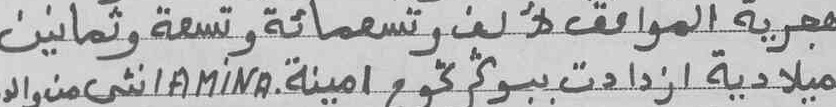 هجرية الموافق لألف وتسعمائة وتسعة وثمانين
ميلادية ازدادت ببوكم تحوم امينة. AMINA انثى من والد